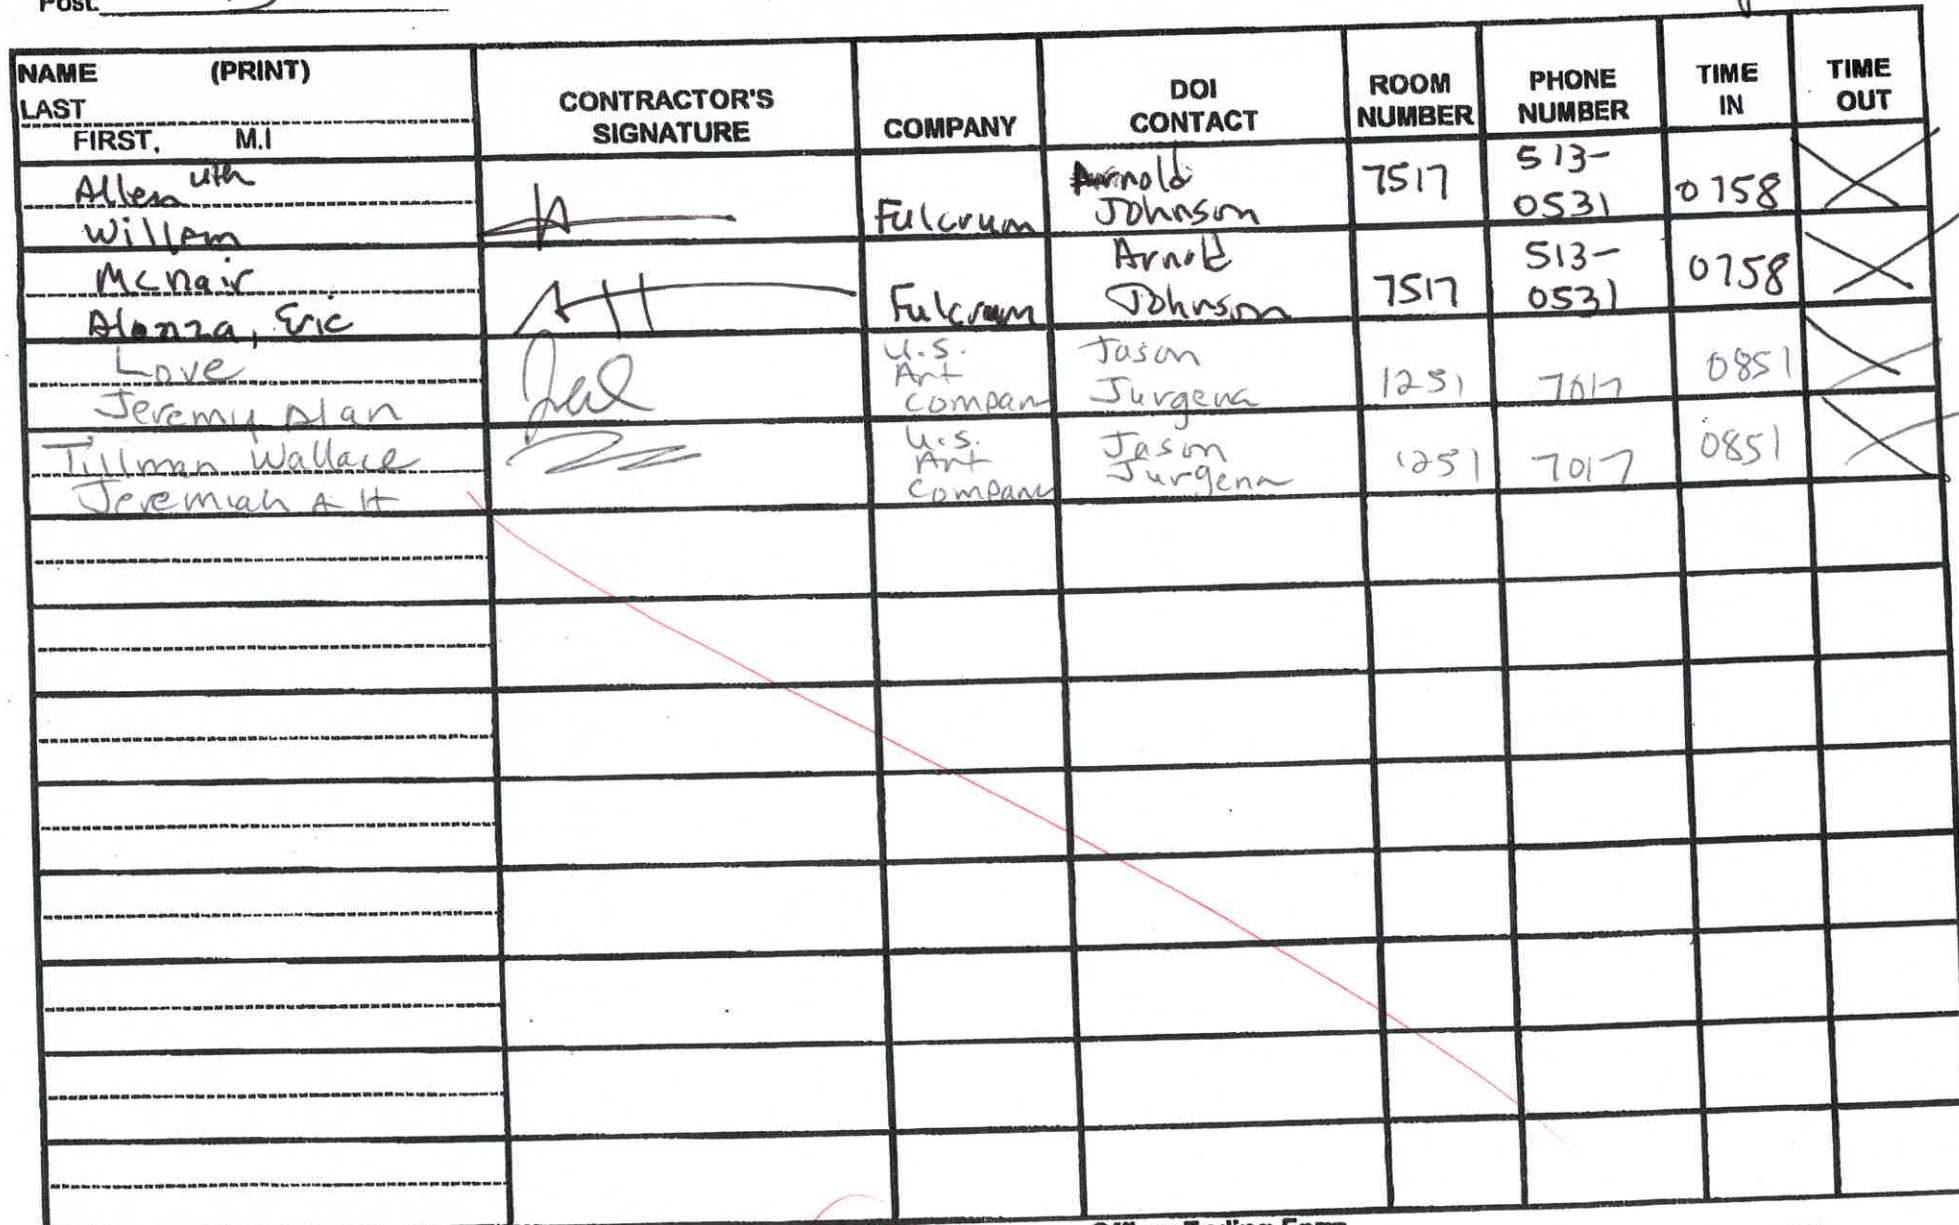 Post:
NAME (PRINT)
LAST
FIRST, M.I
CONTRACTOR'S
SIGNATURE
COMPANY
DOI
CONTACT
ROOM
NUMBER
PHONE
NUMBER
TIME
IN
TIME
OUT
Allen uth
Willem
Fulcrum
Arnold
Johnson
7517
513-
0531
0758
McNair
Alonza, Eric
Fulcrum
Arnold
Johnson
7517
513-
0531
0758
Love
Jeremy Alan
U.S.
Art
Compan
Jason
Jurgena
1251
7017
0851
Tillman Wallace
Jeremiah A H
U.S.
Art
Company
Jason
Jurgena
1251
7017
0851